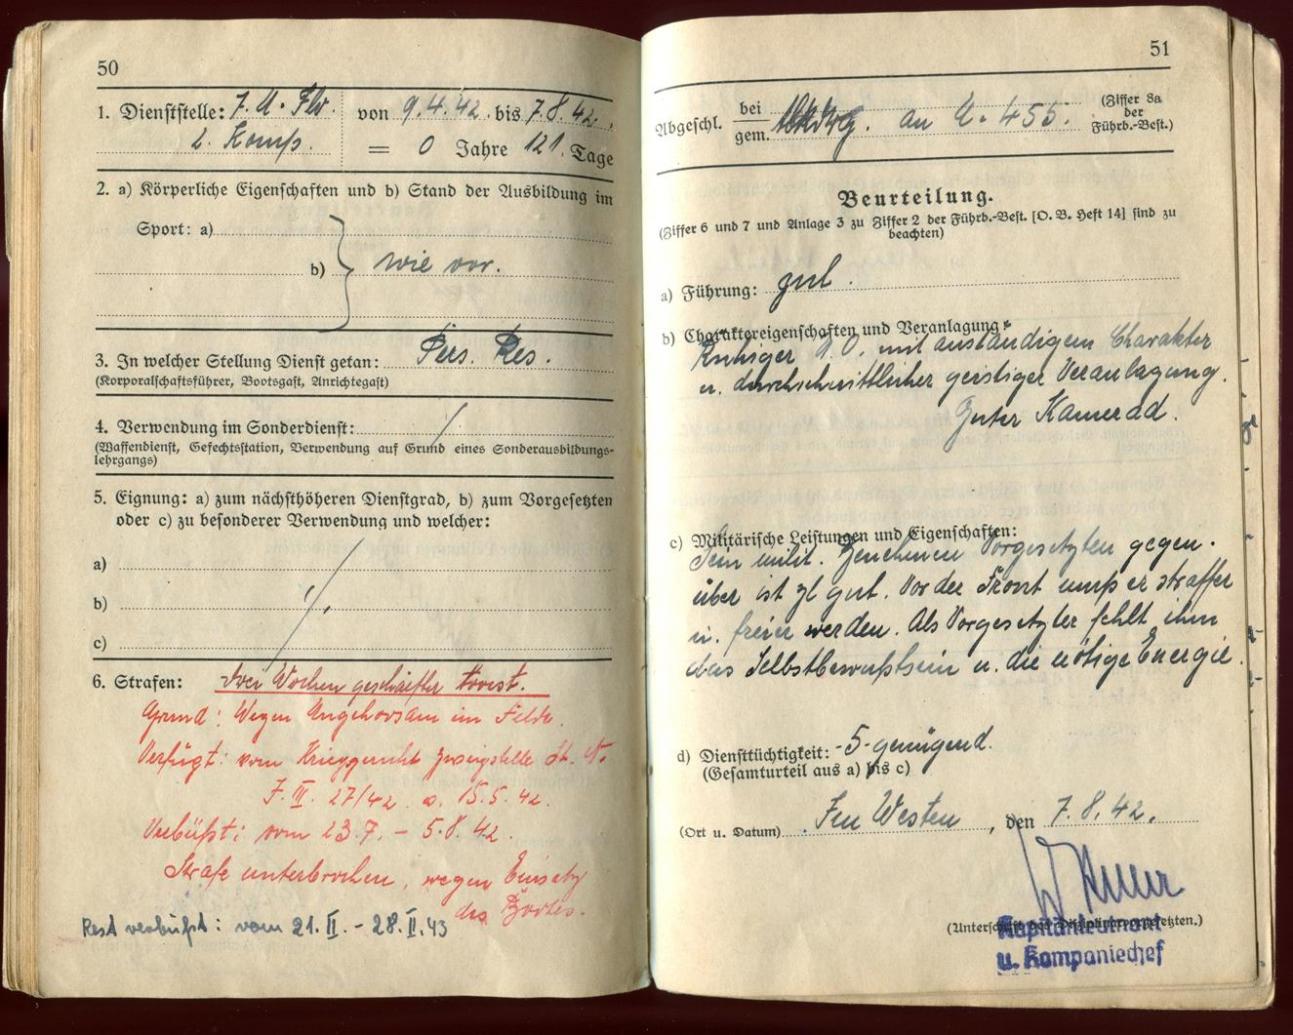 50
1. Dienststelle: 7. U. Flo. von 9.4.42. bis 7.8.42.,
2. Komp. = 0 Jahre 121. Tage
2. a) Körperliche Eigenschaften und b) Stand der Ausbildung im
Sport: a)
b) } wie vor.
3. In welcher Stellung Dienst getan: Pers. Res.
(Korporalschaftsführer, Bootsgast, Anrichtegast)
4. Verwendung im Sonderdienst: /
(Waffendienst, Gefechtsstation, Verwendung auf Grund eines Sonderausbildungs-
lehrgangs)
5. Eignung: a) zum nächsthöheren Dienstgrad, b) zum Vorgesetzten
oder c) zu besonderer Verwendung und welcher:
a)
b) ./.
c)
6. Strafen: drei Wochen geschärfter Arrest.
Grund: Wegen Ungehorsam im Felde.
Verfügt: vom Kriegsgericht Zweigstelle St. N.
J. III. 27/42. v. 15.5.42.
Verbüßt: vom 23.7. – 5.8.42.
Strafe unterbrochen, wegen Einsatz
des Bootes.
Rest verbüßt: vom 21.II. – 28.II.43
51
Abgeschl. bei
gem. an U. 455. (Ziffer 8a
der
Führb.-Best.)
Beurteilung.
(Ziffer 6 und 7 und Anlage 3 zu Ziffer 2 der Führb.-Best. [O. B. Heft 14] sind zu
beachten)
a) Führung: gut.
b) Charaktereigenschaften und Veranlagung:
Ruhiger U.O. mit anständigem Charakter
u. durchschnittlicher geistiger Veranlagung.
Guter Kamerad.
c) Militärische Leistungen und Eigenschaften:
Sein milit. Benehmen Vorgesetzten gegen-
über ist zl gut. Vor der Front muß er straffer
u. freier werden. Als Vorgesetzter fehlt ihm
das Selbstbewußtsein u. die nötige Energie.
d) Diensttüchtigkeit: -5- genügend.
(Gesamturteil aus a) bis c)
(Ort u. Datum) Im Westen, den 7.8.42.
(Unterschrift des Disziplinarvorgesetzten.)
Kapitänleutnant
u. Kompaniechef